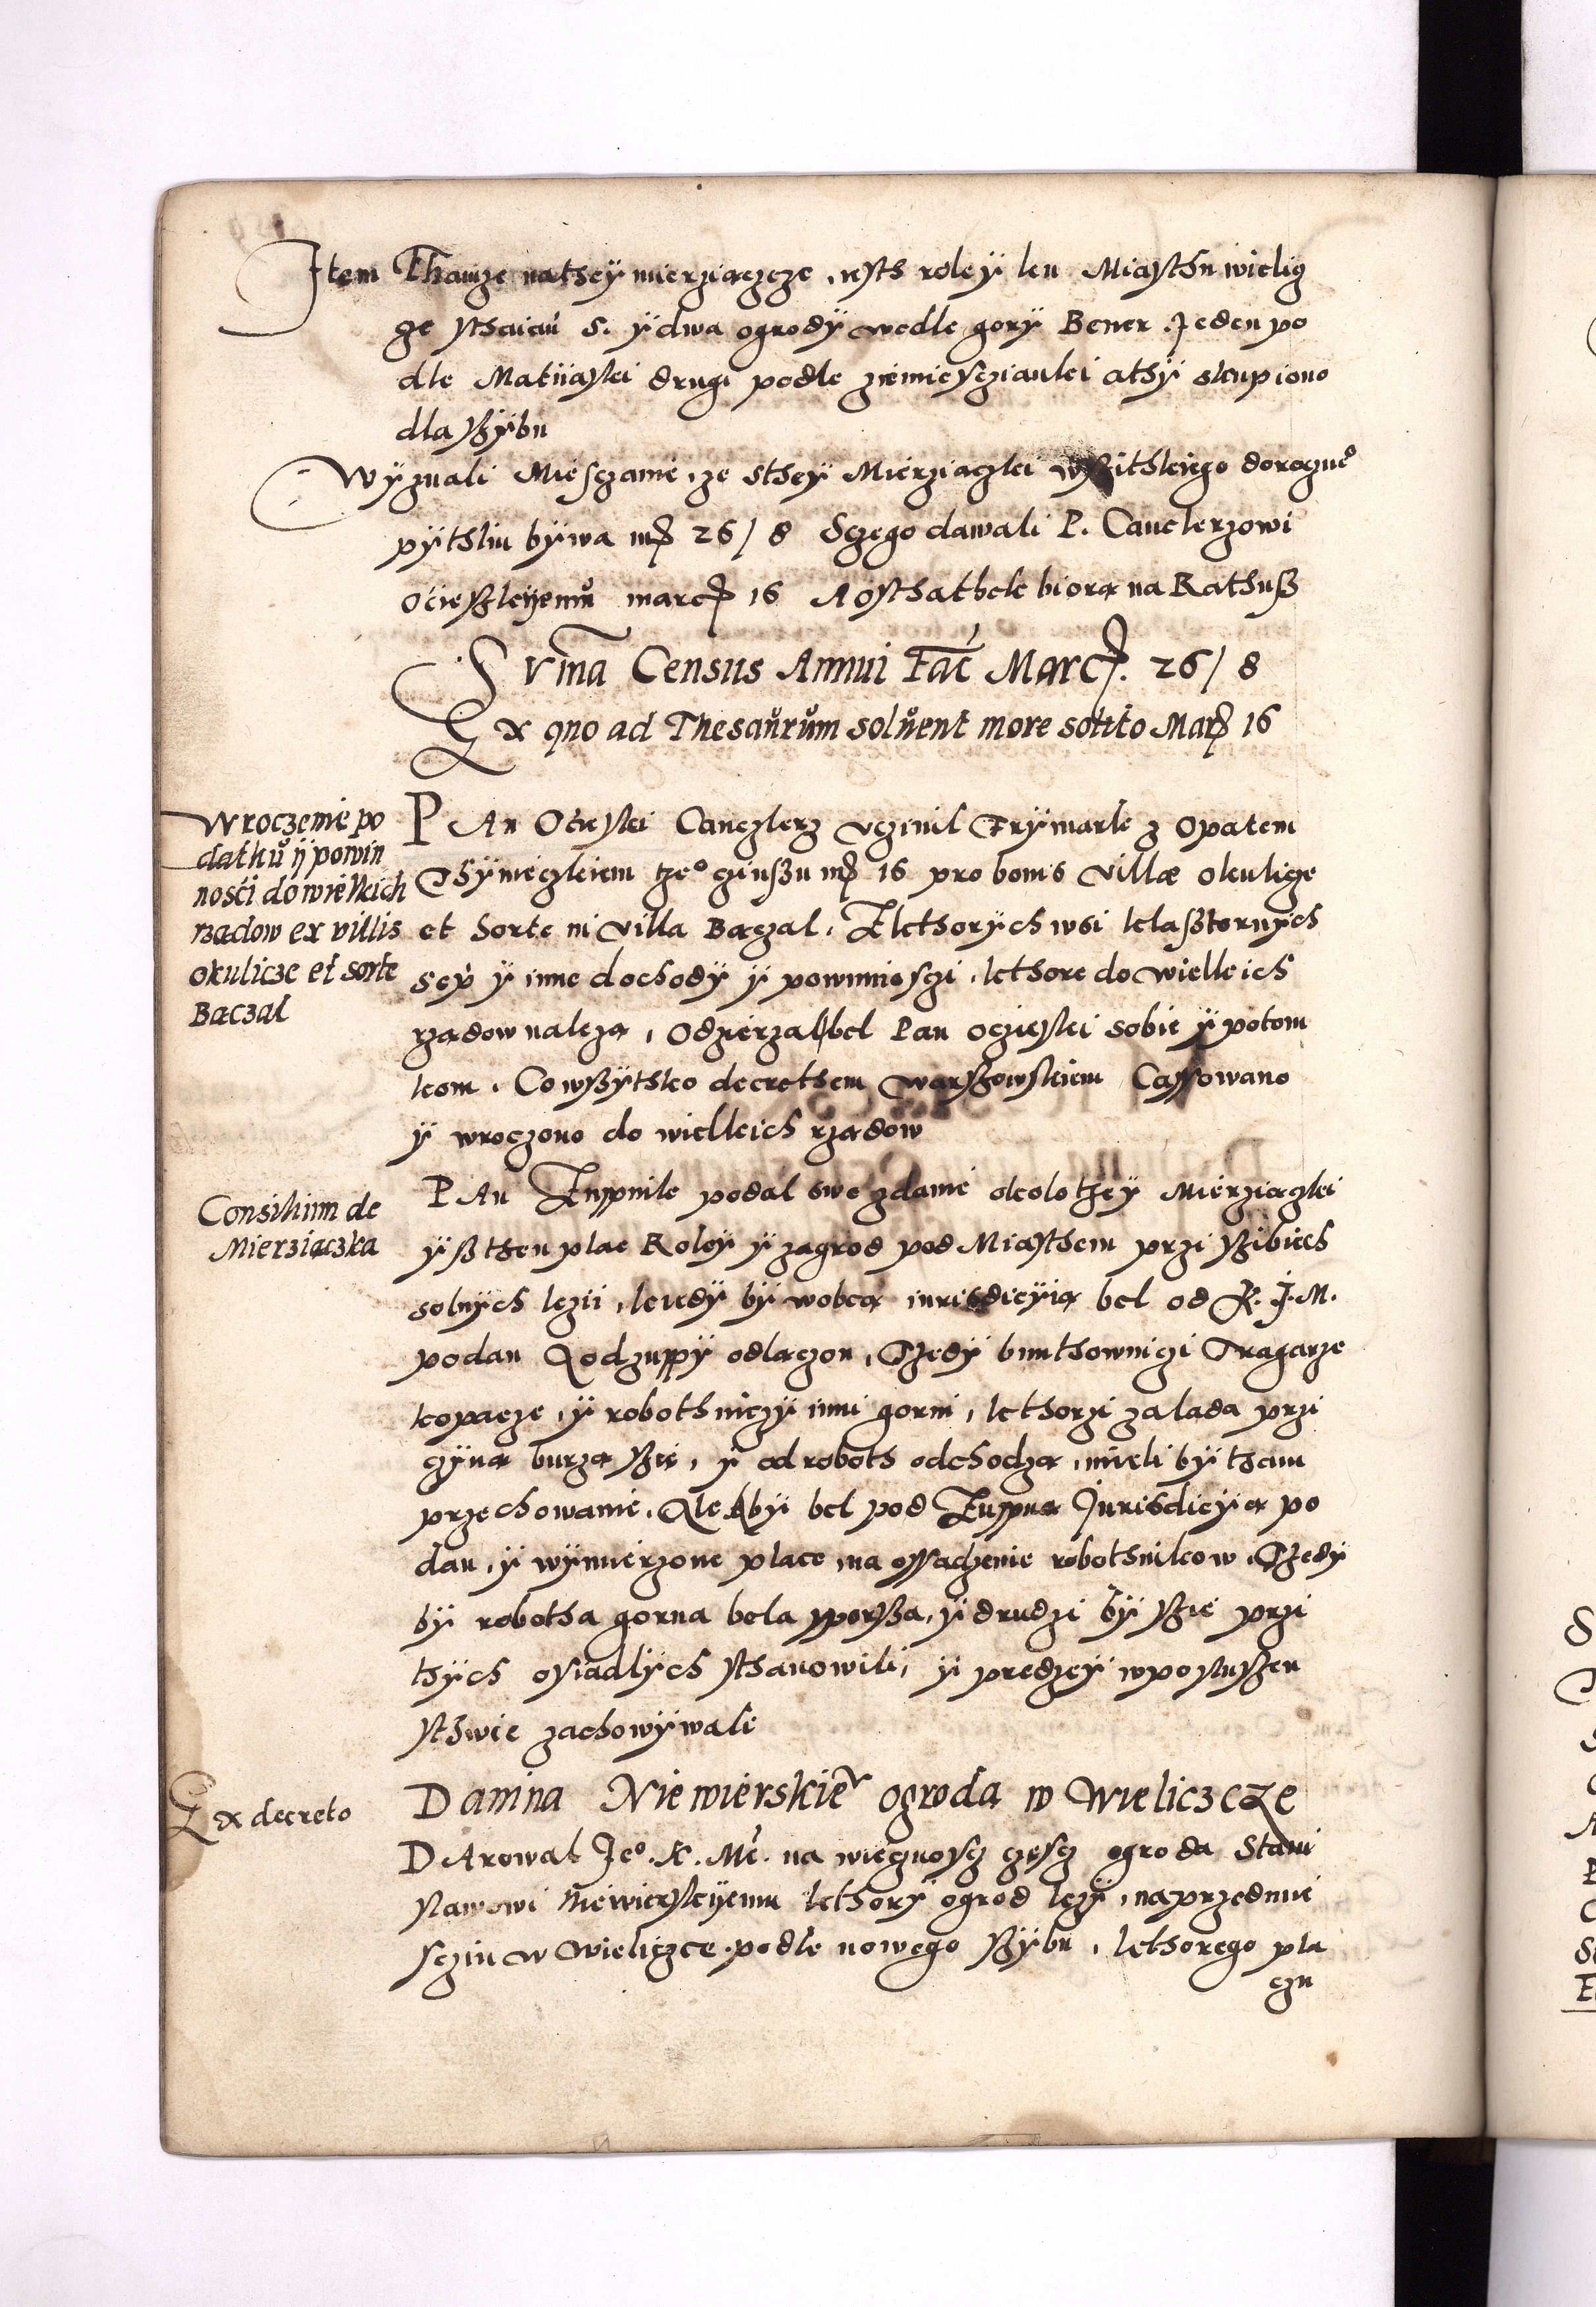 Item Thamze nathey mierziaczcze, iesth roley ku Miasthu wielicz
ze sthaian 5. y dwa ogrody wedle gory Bener. Jeden po
dle Matiiaski drugi podle ziemiesczianki a thy skupiono
dla szybu
Wyznali Miesczanie, ze sthey Mierziaczki wszithkiego dorocznego
pythku bywa mrc 26/8 Sczego dawali P. Canclerzowi
Ocieskiyemu marc 16 A osthathek biora na Rathusz
Summa Census Annui Fac Marc. 26/8
Ex quo ad Thesaurum soluent more solito Marc 16
Wroczenie po
dathku ij powin
nosci do wielkich
rzadow ex villis
okulicze et sorte
Baczal
PAn Ocieski Canczlerz vczinil Frymark z Opatem
Thynieczkiem tzeo czinszu mrc 16 pro bonis villæ okulicze
et Sorte in villa Baczal. Z kthorych wsi klasztornych
sep y inne dochody y powinnosczi, kthore do wielkich
rzadow naleza, Odzierzal bel Pan Oczieski sobie y potom
kom. Co wszythko decrethem warszowskiem Cassowano
y wroczono do wielkich rzadow
Consilium de
Mierziaczka
PAn Zuppnik podal swe zdanie okolo tzey Mierziaczki
ysz then plac Roley y zagrod pod Miasthem przi szibiech
solnych lezii, kiedy by wobca iurisdicyia bel od K. J. M.
podan y odzuppy odlaczon, Tzedy bunthownici Tragarze
kopacze, y robothniczy inni gorni, kthorzi za lada przi
czyna burza szie, y od roboth odchodza, mieli by tham
przechowanie. Ale kby bel pod Zuppna Jurisdicyia po
dan, y wymierzone place, na ossadzenie robothnikow. Tzedy
by robotha gorna bela sporsza, y drudzi by szie przi
thych osiadlych sthanowili, y predzey wposluszen
sthwie zachowywali
Ex decreto
Danina Niewierskieo ogroda w Wieliczcze
DArowal Jeo. K. Mc. na wiecznoscz czescz ogroda Stani
slawowi Niewierskiyemu kthory ogrod lezy, naprzedmie
scziu w Wieliczce podle nowego szybu, kthorego pla
czu